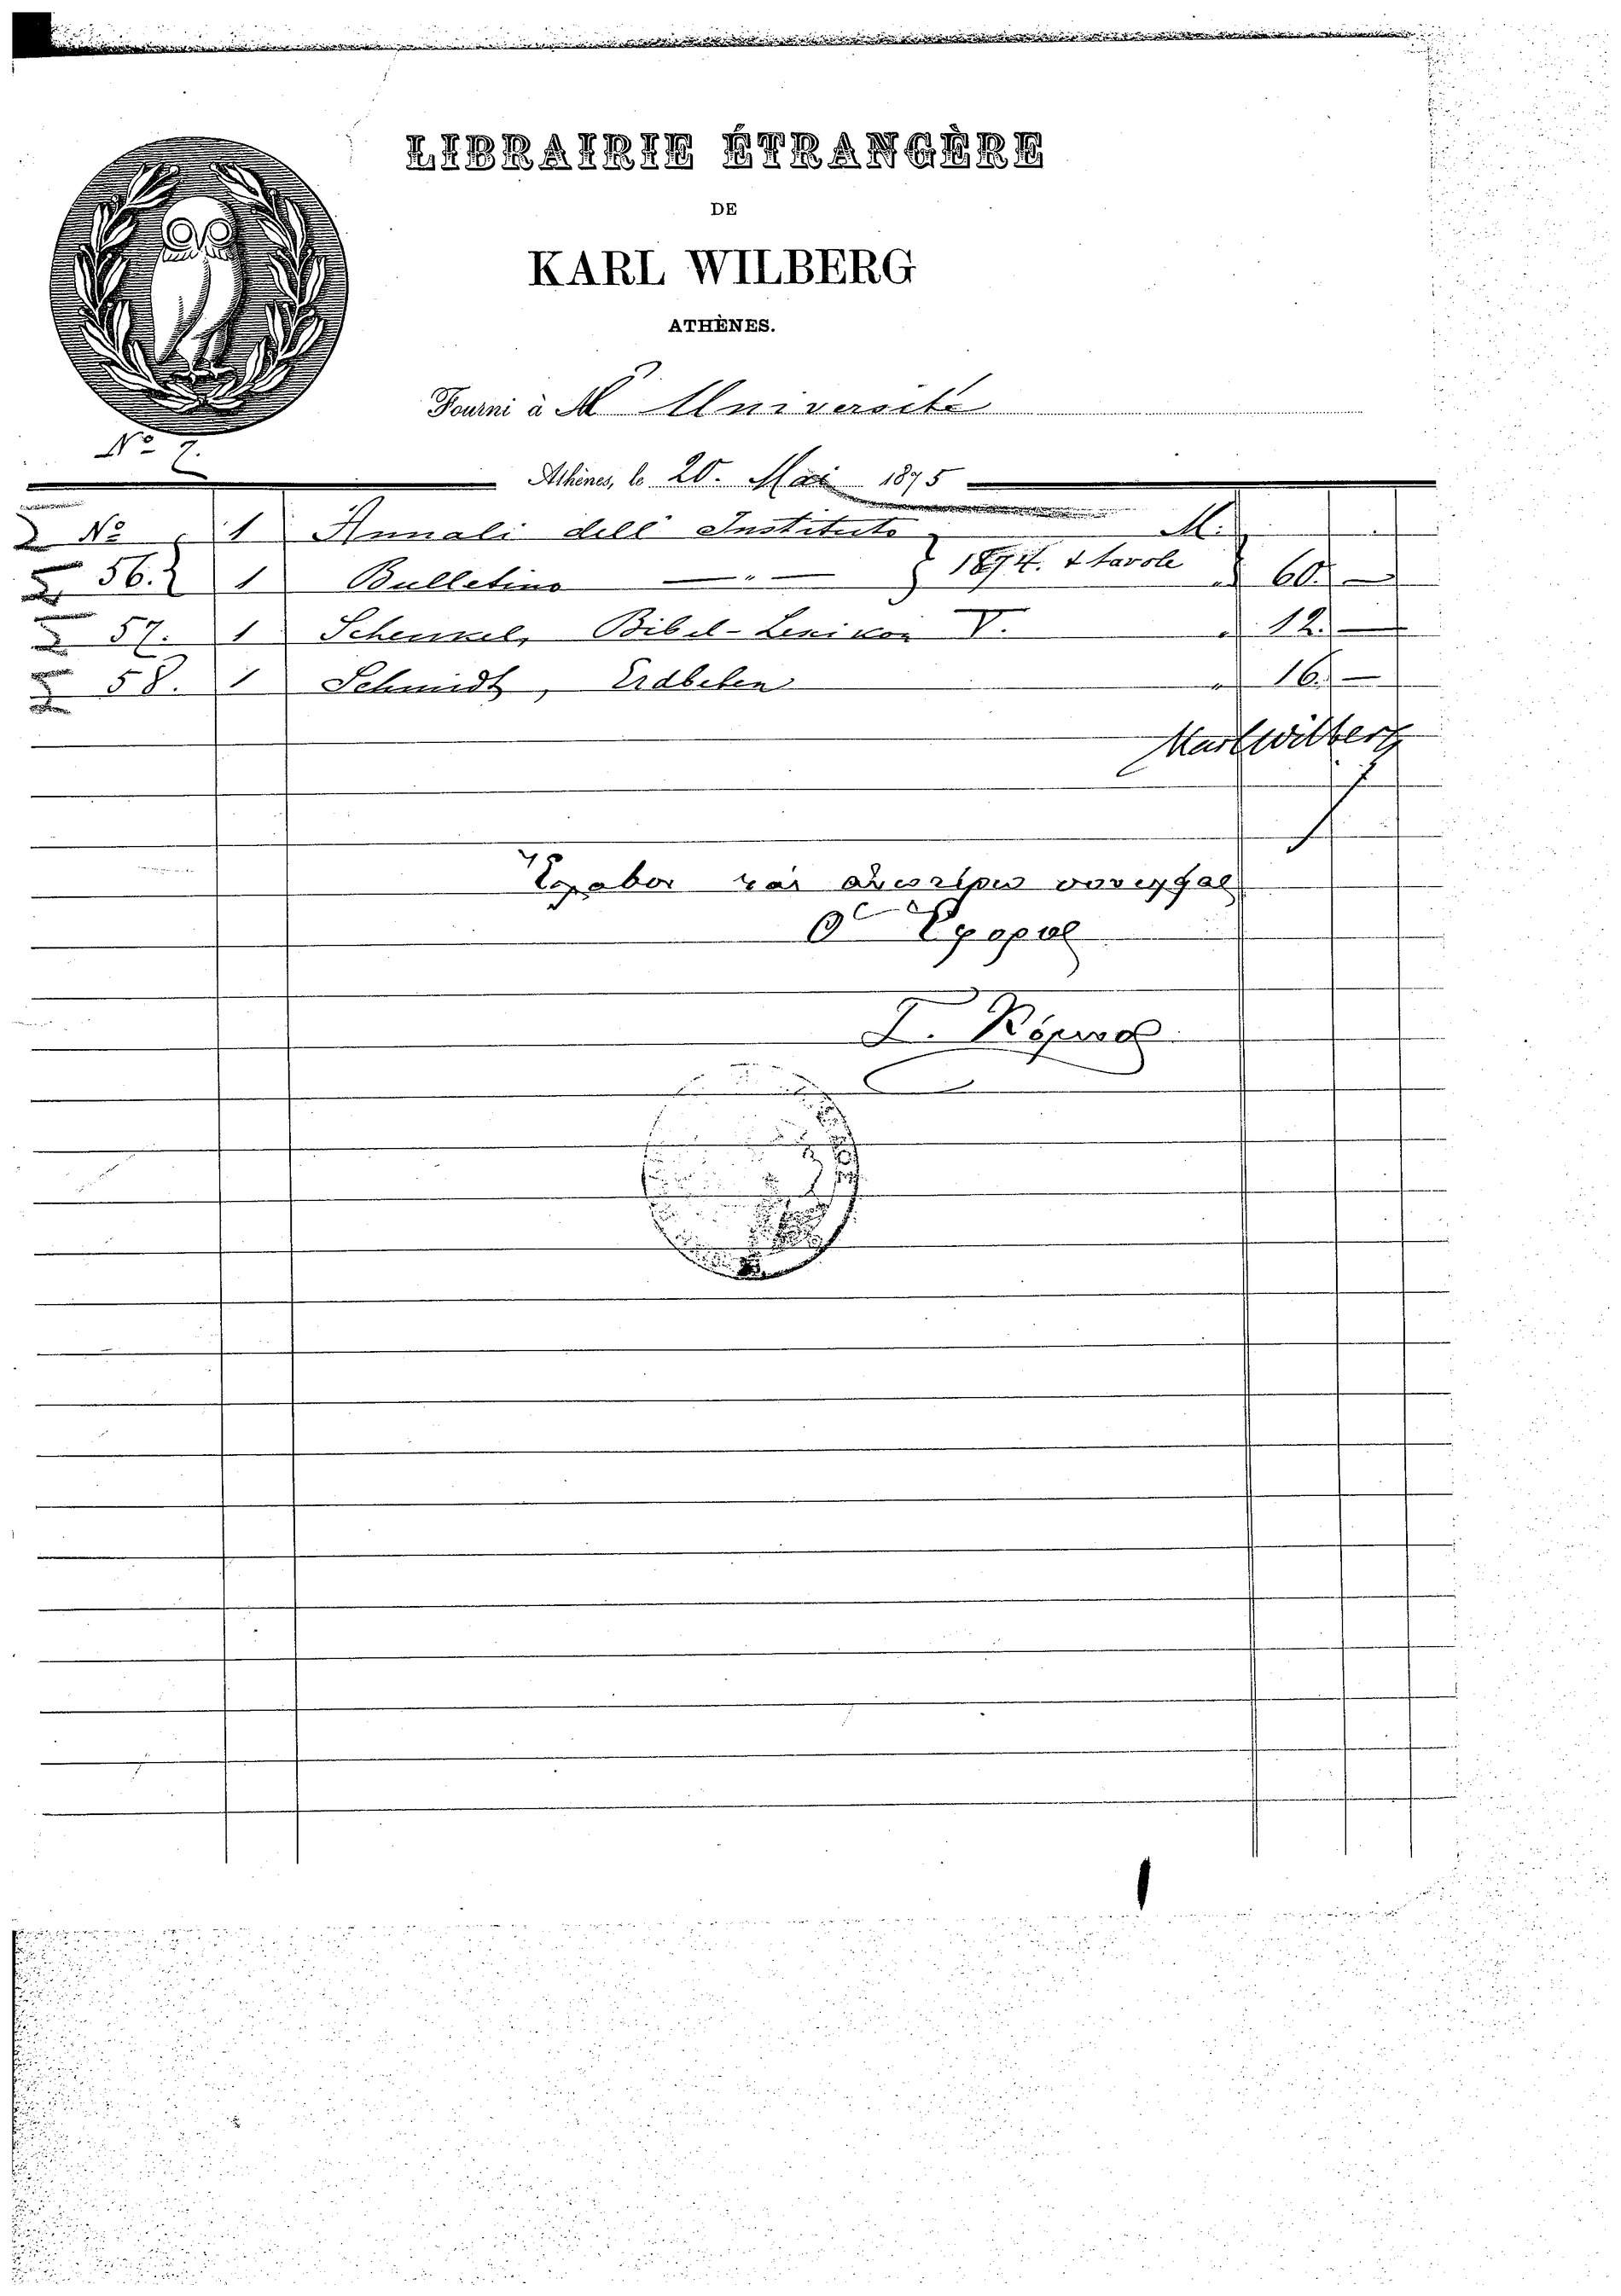 LIBRAIRIE ÉTRANGÈRE
DE
KARL WILBERG
ATHÈNES.
Fourni à Mr Université
No 7.
Athènes, le 20. Mai 1875
No 1 Annali dell' Instituto M.
56. 1 Bulletino — " — } 1874. & tavole " 60. —
57. 1 Schenkel, Bibel-Lexikon V. " 12. —
58. 1 Schmidt, Erdbeben " 16. —
Karl Wilberg
Ἔλαβον καὶ
Ὁ Ἔφορος